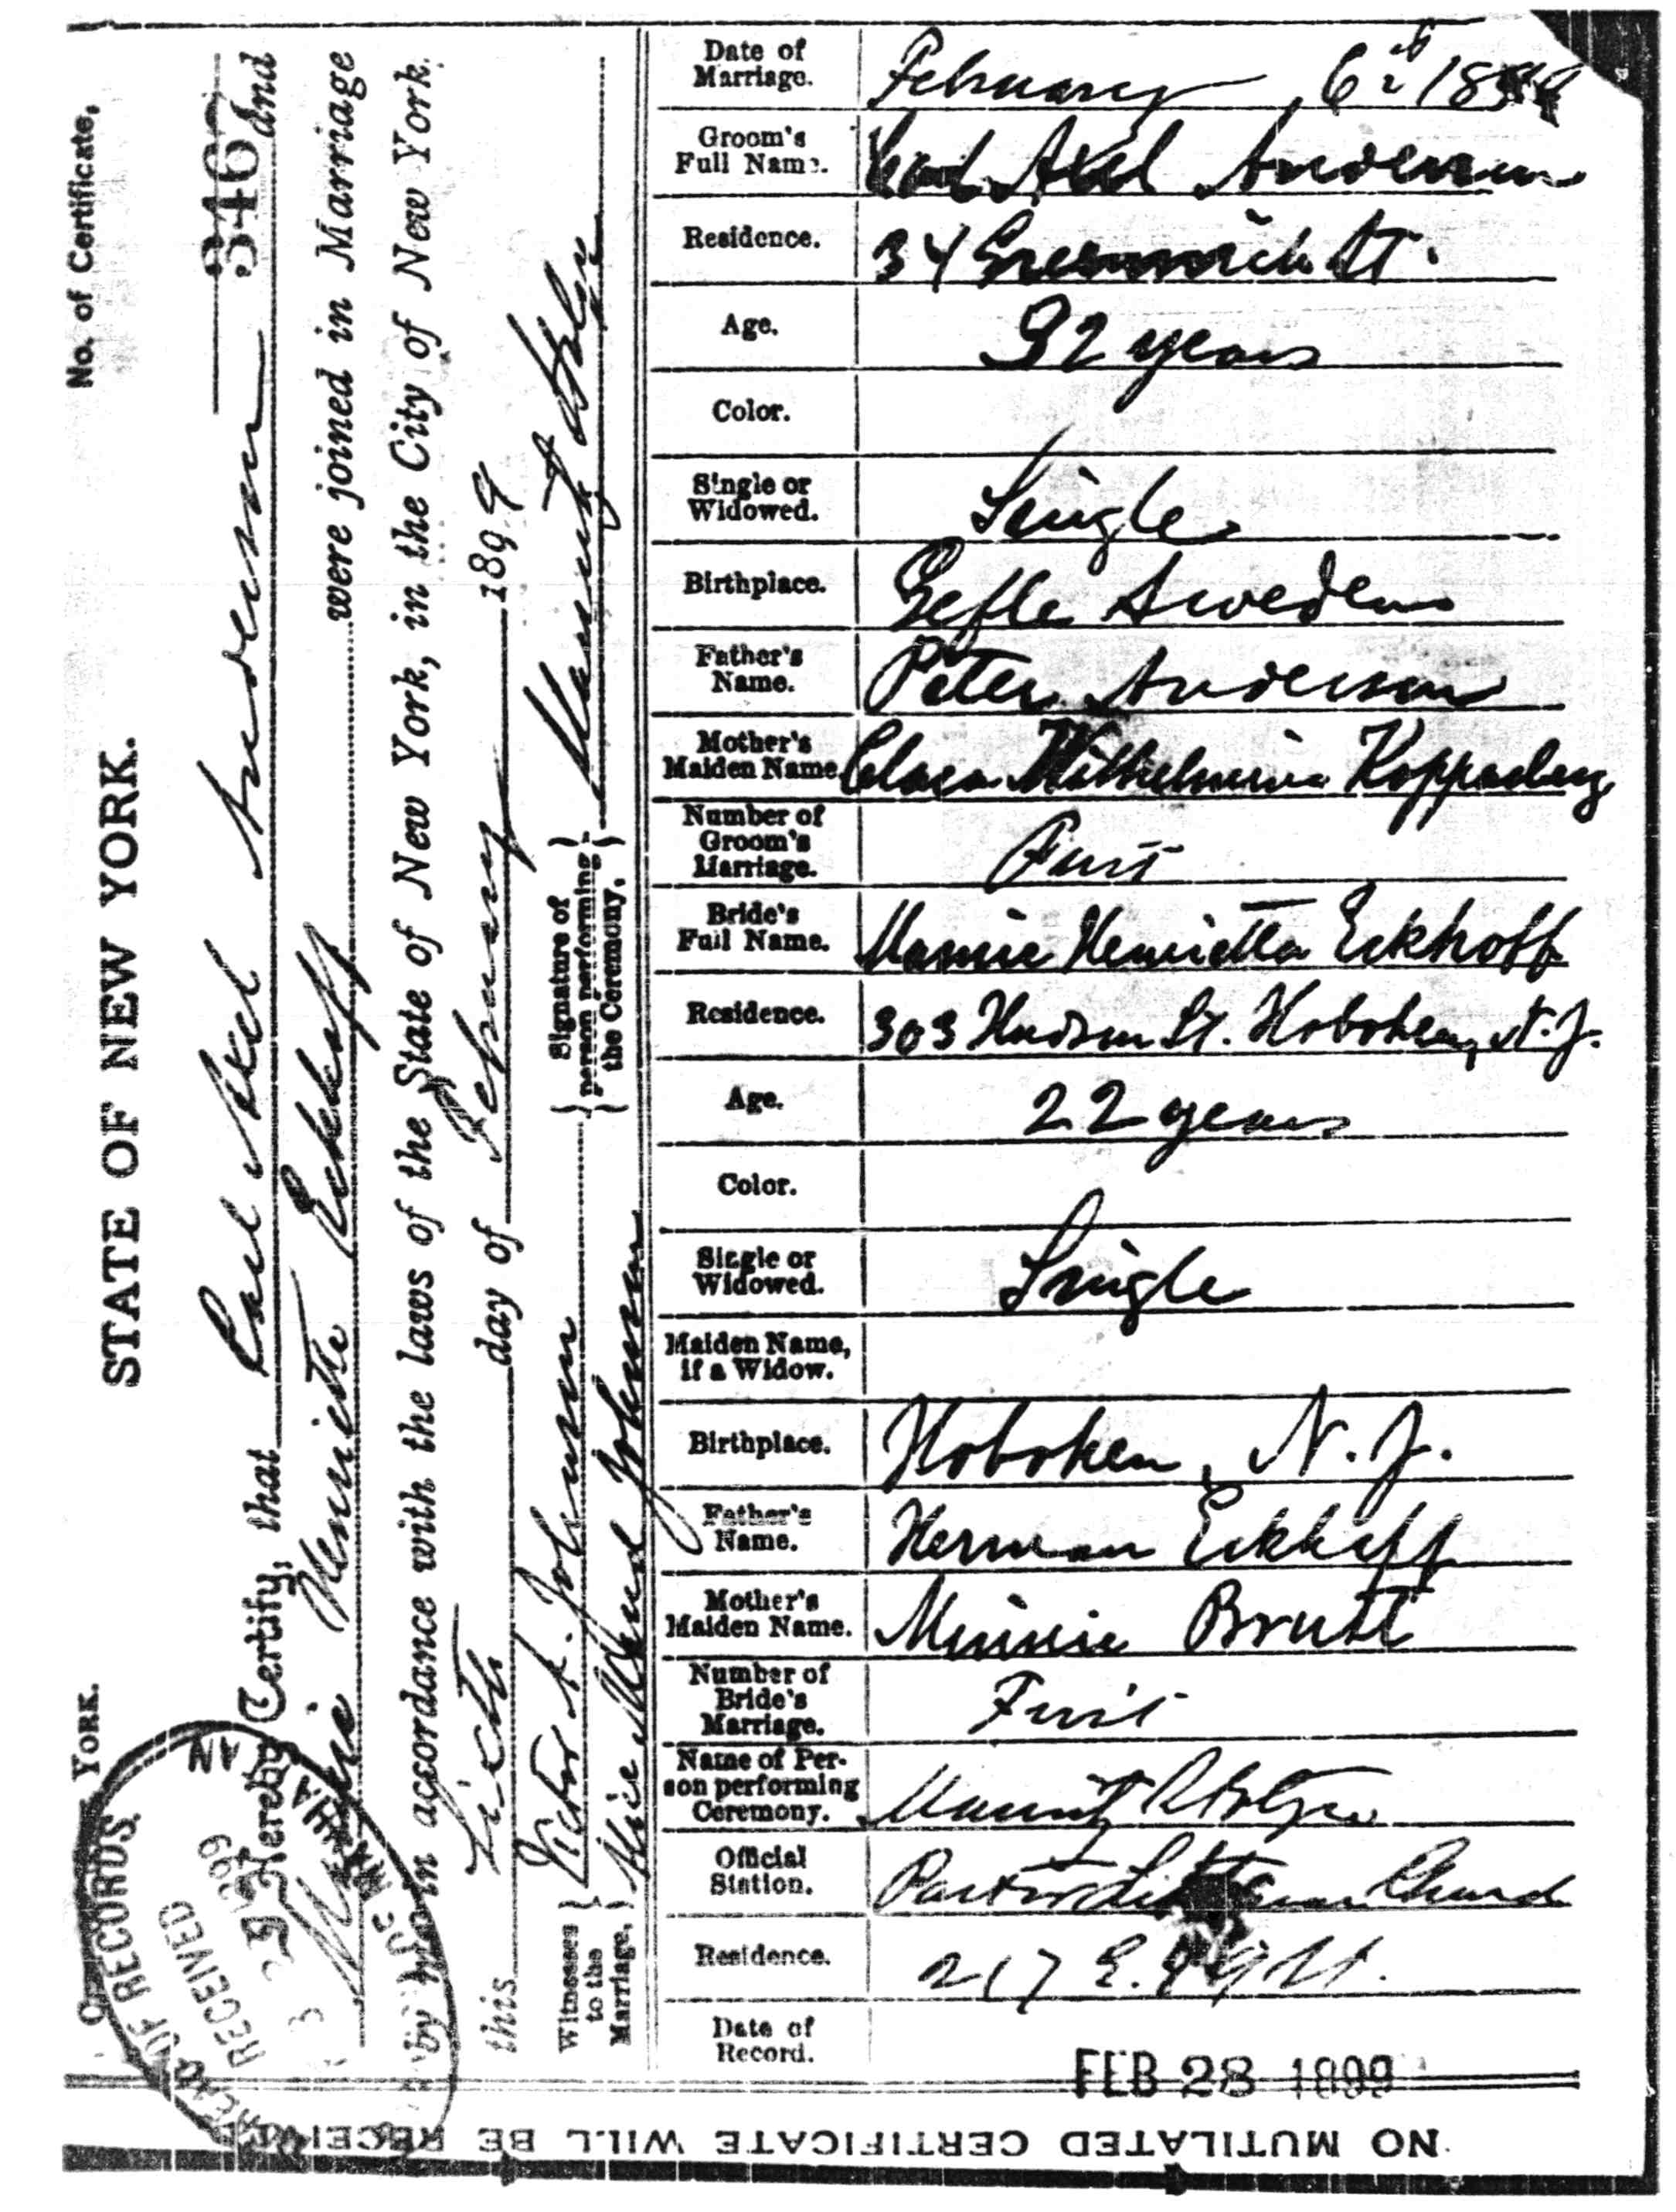 No. of Certificate,
3467
STATE OF NEW YORK.
YORK.
Hereby Certify, that Carl Axel Anderson and
Mamie Henrietta Eckhoff were joined in Marriage
by me in accordance with the laws of the State of New York, in the City of New York.
this Sixth day of February 1899
Witnesses to the Marriage,
Victor A. Johnson
Signature of person performing the Ceremony,
BUREAU OF RECORDS.
RECEIVED
1899
MANHATTAN
Date of Marriage. February 6th 1899
Groom's Full Name. Carl Axel Anderson
Residence. 34 Greenwich St.
Age. 32 years
Color.
Single or Widowed. Single
Birthplace. Gefle Sweden
Father's Name. Peter Anderson
Mother's Maiden Name. Clara Wilhelmina
Number of Groom's Marriage. First
Bride's Full Name. Mamie Henrietta Eckhoff
Residence. 303 Hudson St. Hoboken, N.J.
Age. 22 years
Color.
Single or Widowed. Single
Maiden Name, if a Widow.
Birthplace. Hoboken, N.J.
Father's Name. Herman Eckhoff
Mother's Maiden Name. Minnie Brutt
Number of Bride's Marriage. First
Name of Person performing Ceremony. Mauritz Stolpe
Official Station. Pastor Lutheran Church
Residence. 217 E. St.
Date of Record. FEB 28 1899
NO MUTILATED CERTIFICATE WILL BE RECEIVED